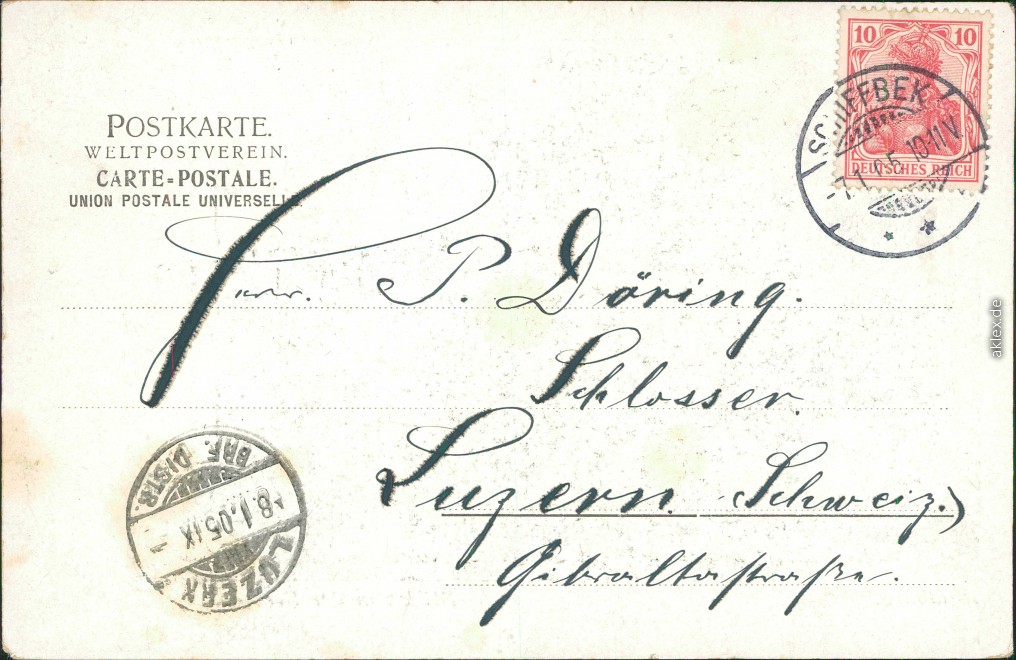 POSTKARTE.
WELTPOSTVEREIN.
CARTE=POSTALE.
UNION POSTALE UNIVERSELLE.
10 10
DEUTSCHES REICH
SCHIFFBEK
7.1.05 10-11V
Herrn.
P. Döring.
Schlosser.
Luzern. (Schweiz.)
Gibraltastraße.
BRF. DISTR.
8.1.05.IX
LUZERN
aklex.de